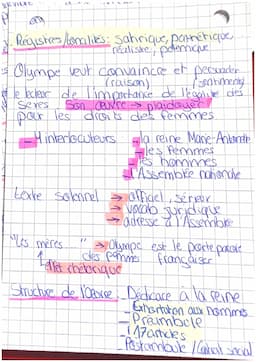 Registres/tonalités: satirique, pathétique,
réaliste, polémique
Olympe veut convaincre et persuader
(raison) (sentiments)
le lecteur de l'importance de l'égalité des
sexes. Son œuvre → plaidoyer
pour les droits des femmes
- 4 interlocuteurs - la reine Marie-Antoinette
- les femmes
- les hommes
- l'Assemblée nationale
texte solennel → officiel, sérieux
→ vocab juridique
→ adresse à l'Assemblée
"Les mères " → Olympe est le porte parole
des femmes françaises
rhétorique
Structure de l'œuvre: - Dédicace à la reine
- Exhortation aux hommes
- Préambule
- 17 articles
- Postambule / Contrat social